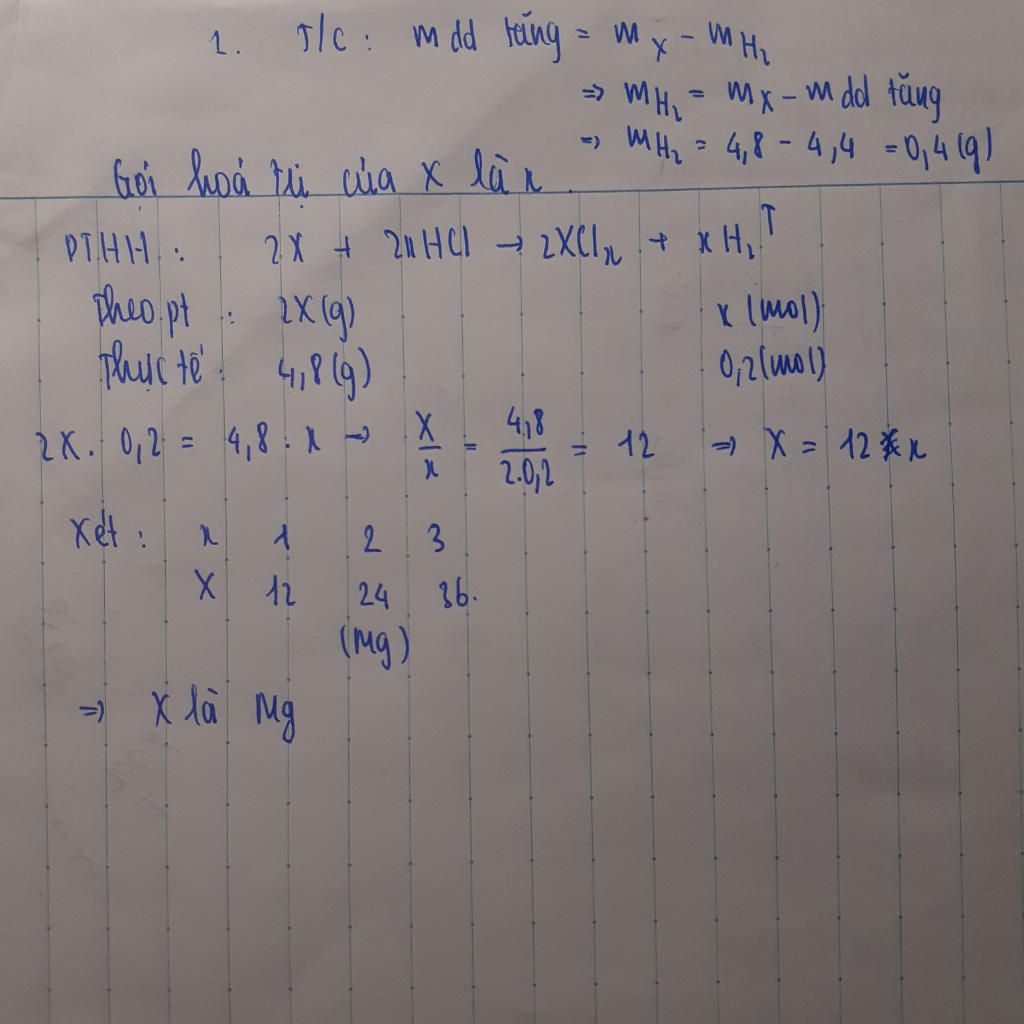 1. T/C : m dd tăng = m X - m H2
=> m H2 = m X - m dd tăng
=> m H2 = 4,8 - 4,4 = 0,4 (g)
Gọi hoá trị của X là x.
PTHH : 2X + 2xHCl → 2XClx + xH2↑
Theo pt : 2X (g) x (mol)
Thực tế : 4,8 (g) 0,2 (mol)
2X . 0,2 = 4,8 . x → X/x = 4,8/2.0,2 = 12 => X = 12 x
Xét : x 1 2 3
X 12 24 36.
(Mg)
=> X là Mg